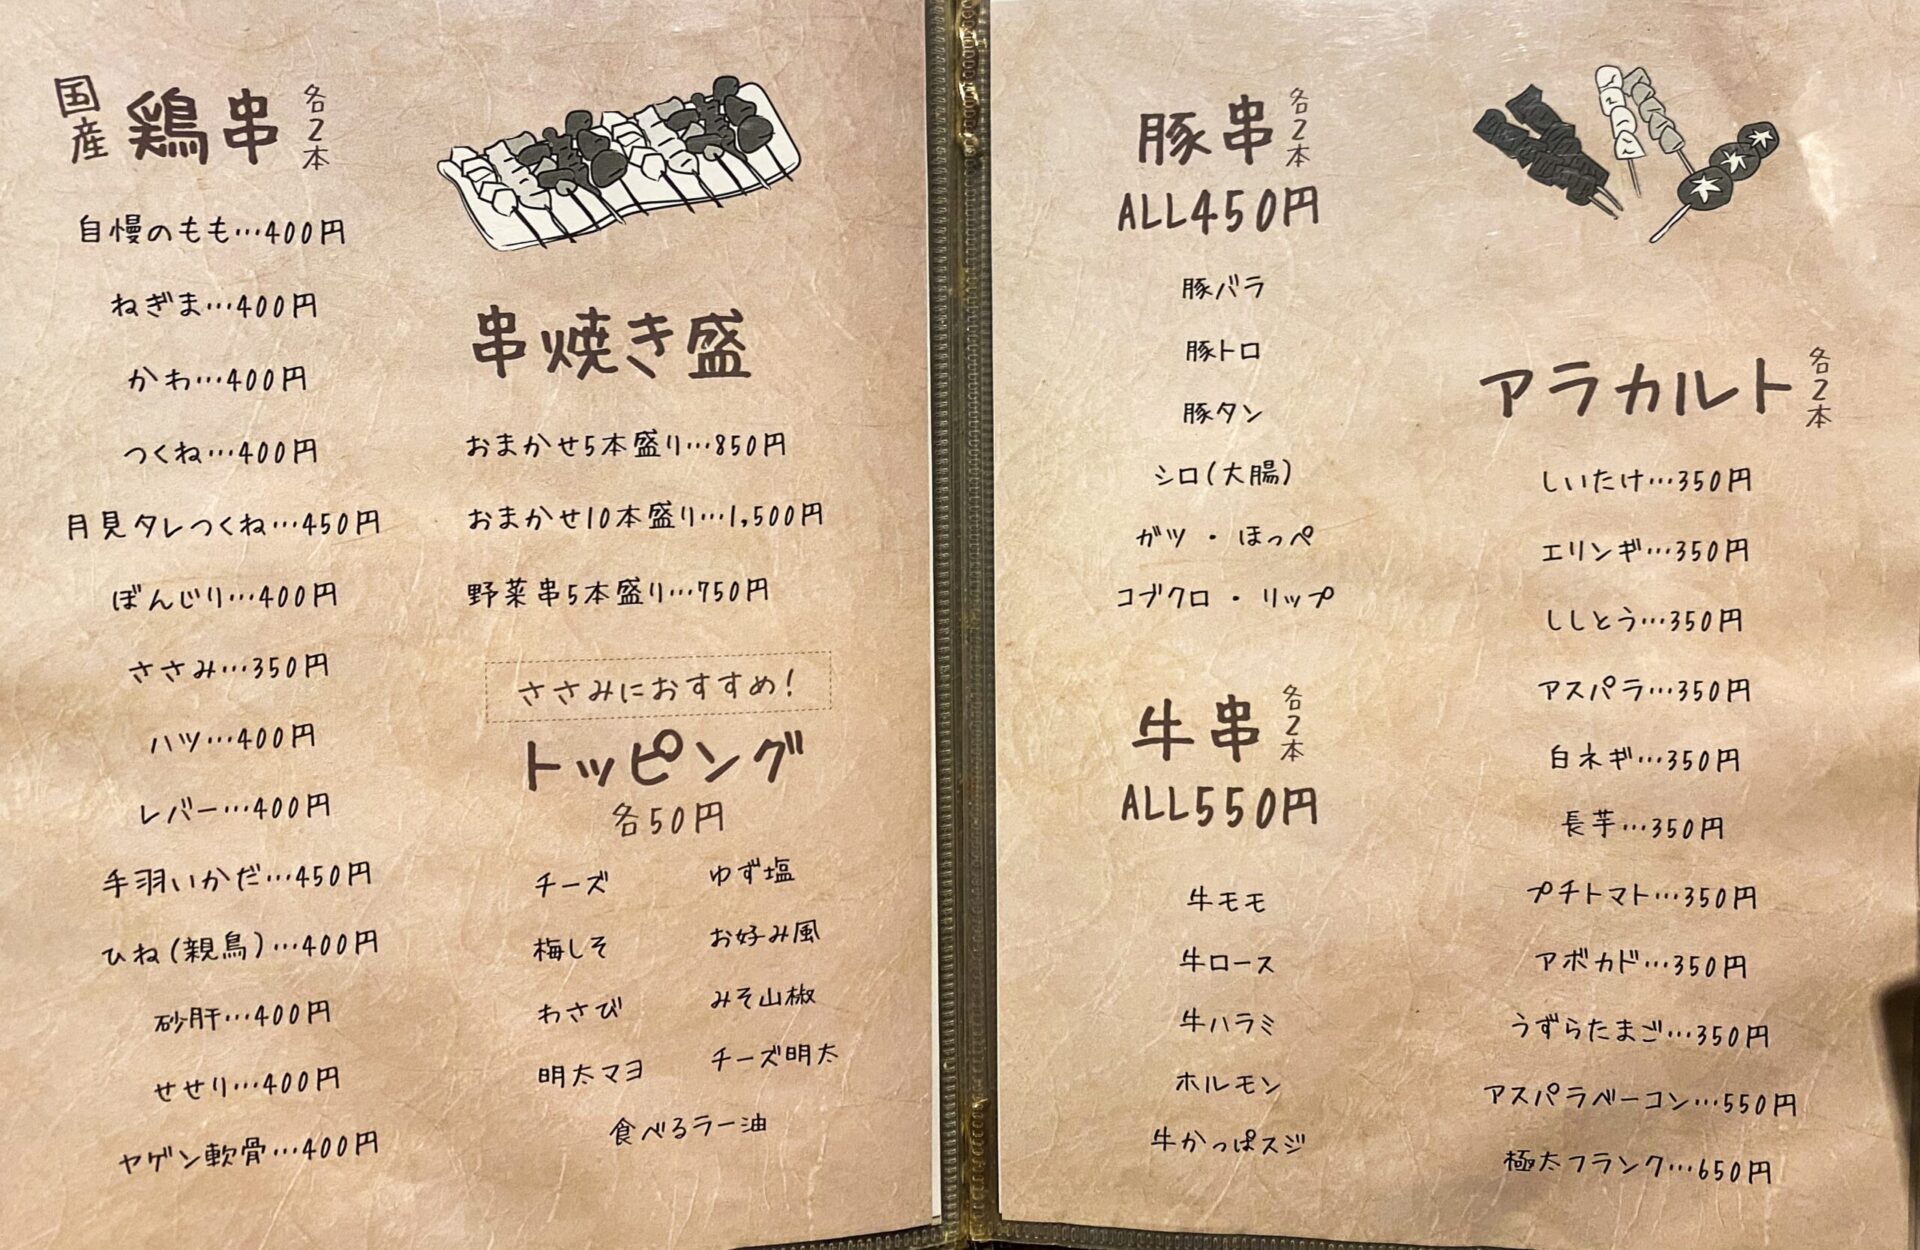 国産 鶏串 各2本
自慢のもも…400円
ねぎま…400円
かわ…400円
つくね…400円
月見タレつくね…450円
ぼんじり…400円
ささみ…350円
ハツ…400円
レバー…400円
手羽いかだ…450円
ひね(親鳥)…400円
砂肝…400円
せせり…400円
ヤゲン軟骨…400円
串焼き盛
おまかせ5本盛り…850円
おまかせ10本盛り…1,500円
野菜串5本盛り…750円
ささみにおすすめ!
トッピング
各50円
チーズ ゆず塩
梅しそ お好み風
わさび みそ山椒
明太マヨ チーズ明太
食べるラー油
豚串 各2本
ALL450円
豚バラ
豚トロ
豚タン
シロ(大腸)
ガツ・ほっぺ
コブクロ・リップ
牛串 各2本
ALL550円
牛モモ
牛ロース
牛ハラミ
ホルモン
牛かっぱスジ
アラカルト 各2本
しいたけ…350円
エリンギ…350円
ししとう…350円
アスパラ…350円
白ネギ…350円
長芋…350円
プチトマト…350円
アボカド…350円
うずらたまご…350円
アスパラベーコン…550円
極太フランク…650円